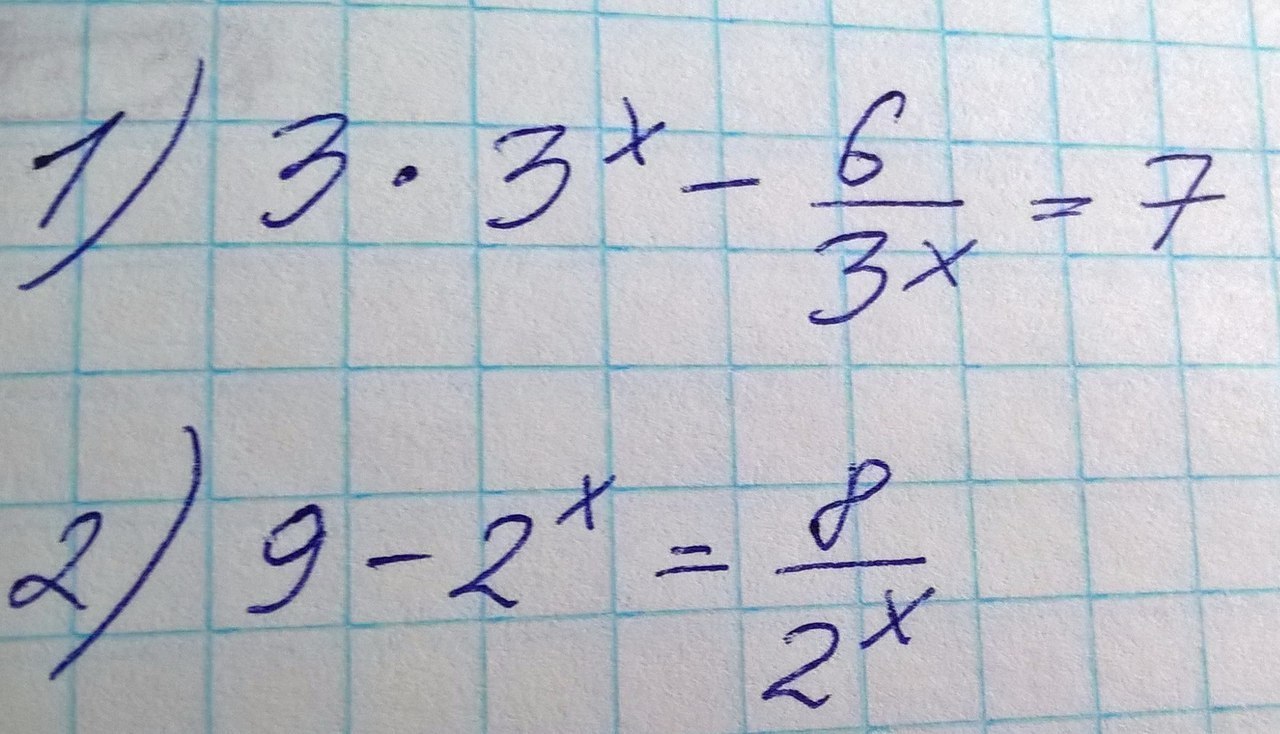 1) 3 · 3^x − 6/3^x = 7
2) 9 − 2^x = 8/2^x